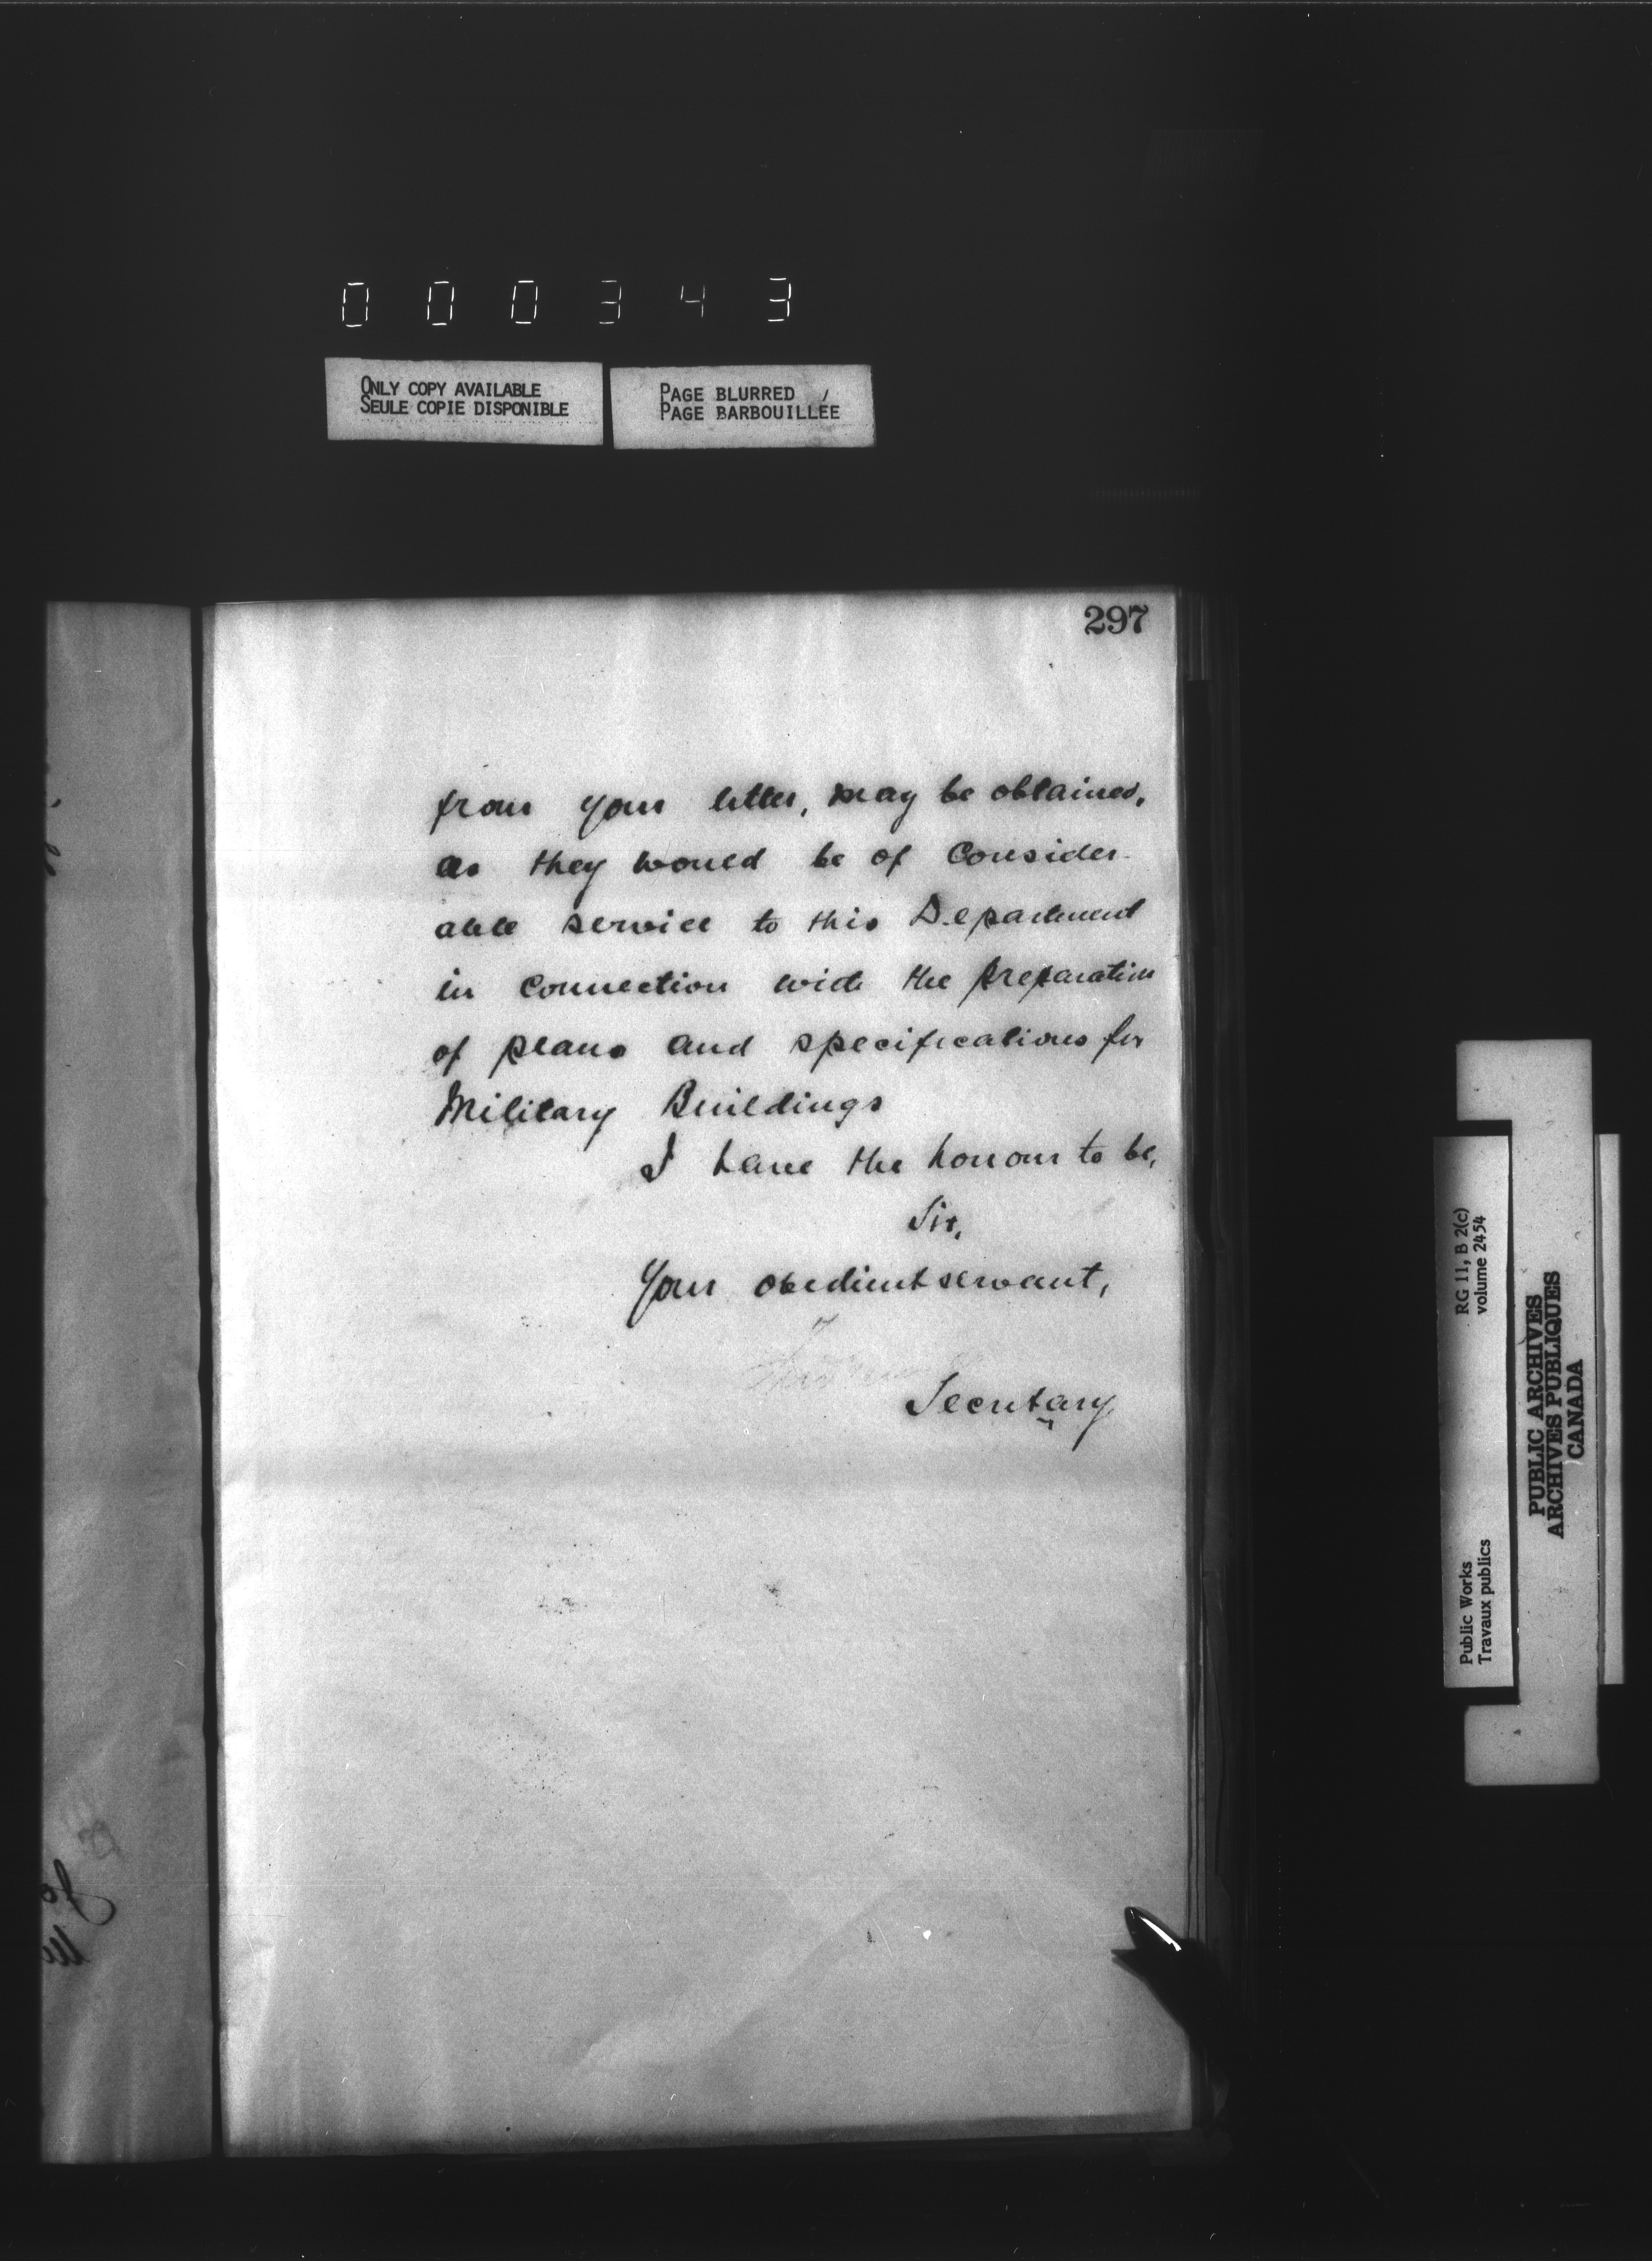 000343
ONLY COPY AVAILABLE
SEULE COPIE DISPONIBLE
PAGE BLURRED
PAGE BARBOUILLÉE
297
from your letter, may be obtained,
as they would be of Consider-
able service to this Department
in connection with the preparation
of plans and specifications for
Military Buildings
I have the honour to be,
Sir,
Your obedient servant,
Secretary
RG 11, B 2(c)
volume 2454
Public Works
Travaux publics
PUBLIC ARCHIVES
ARCHIVES PUBLIQUES
CANADA